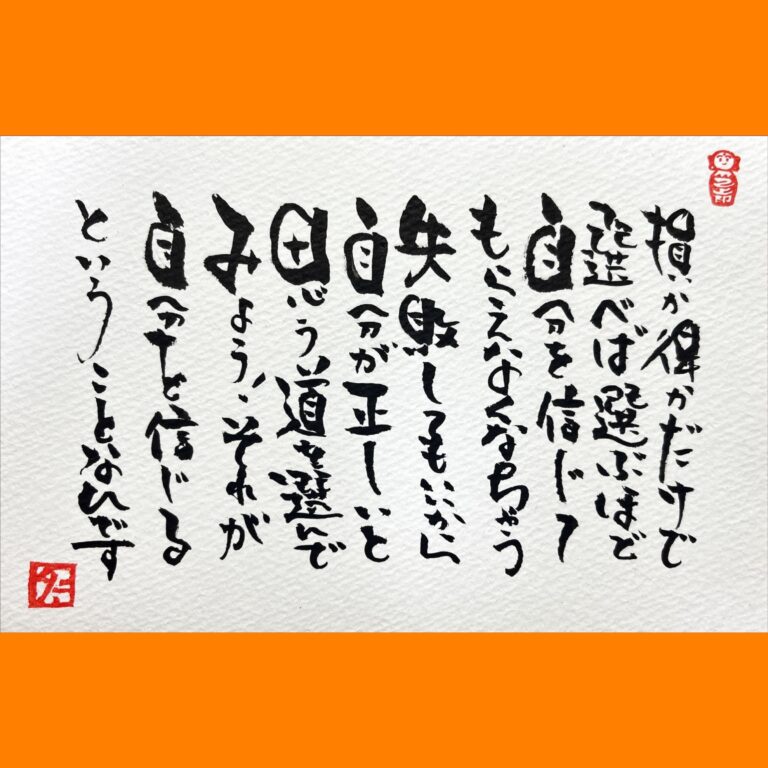 損か得かだけで
選べば選ぶほど
自分を信じて
もらえなくなちゃう
失敗してもいいから
自分が正しいと
思う道を選んで
みよう、それが
自分を信じる
ということなんです